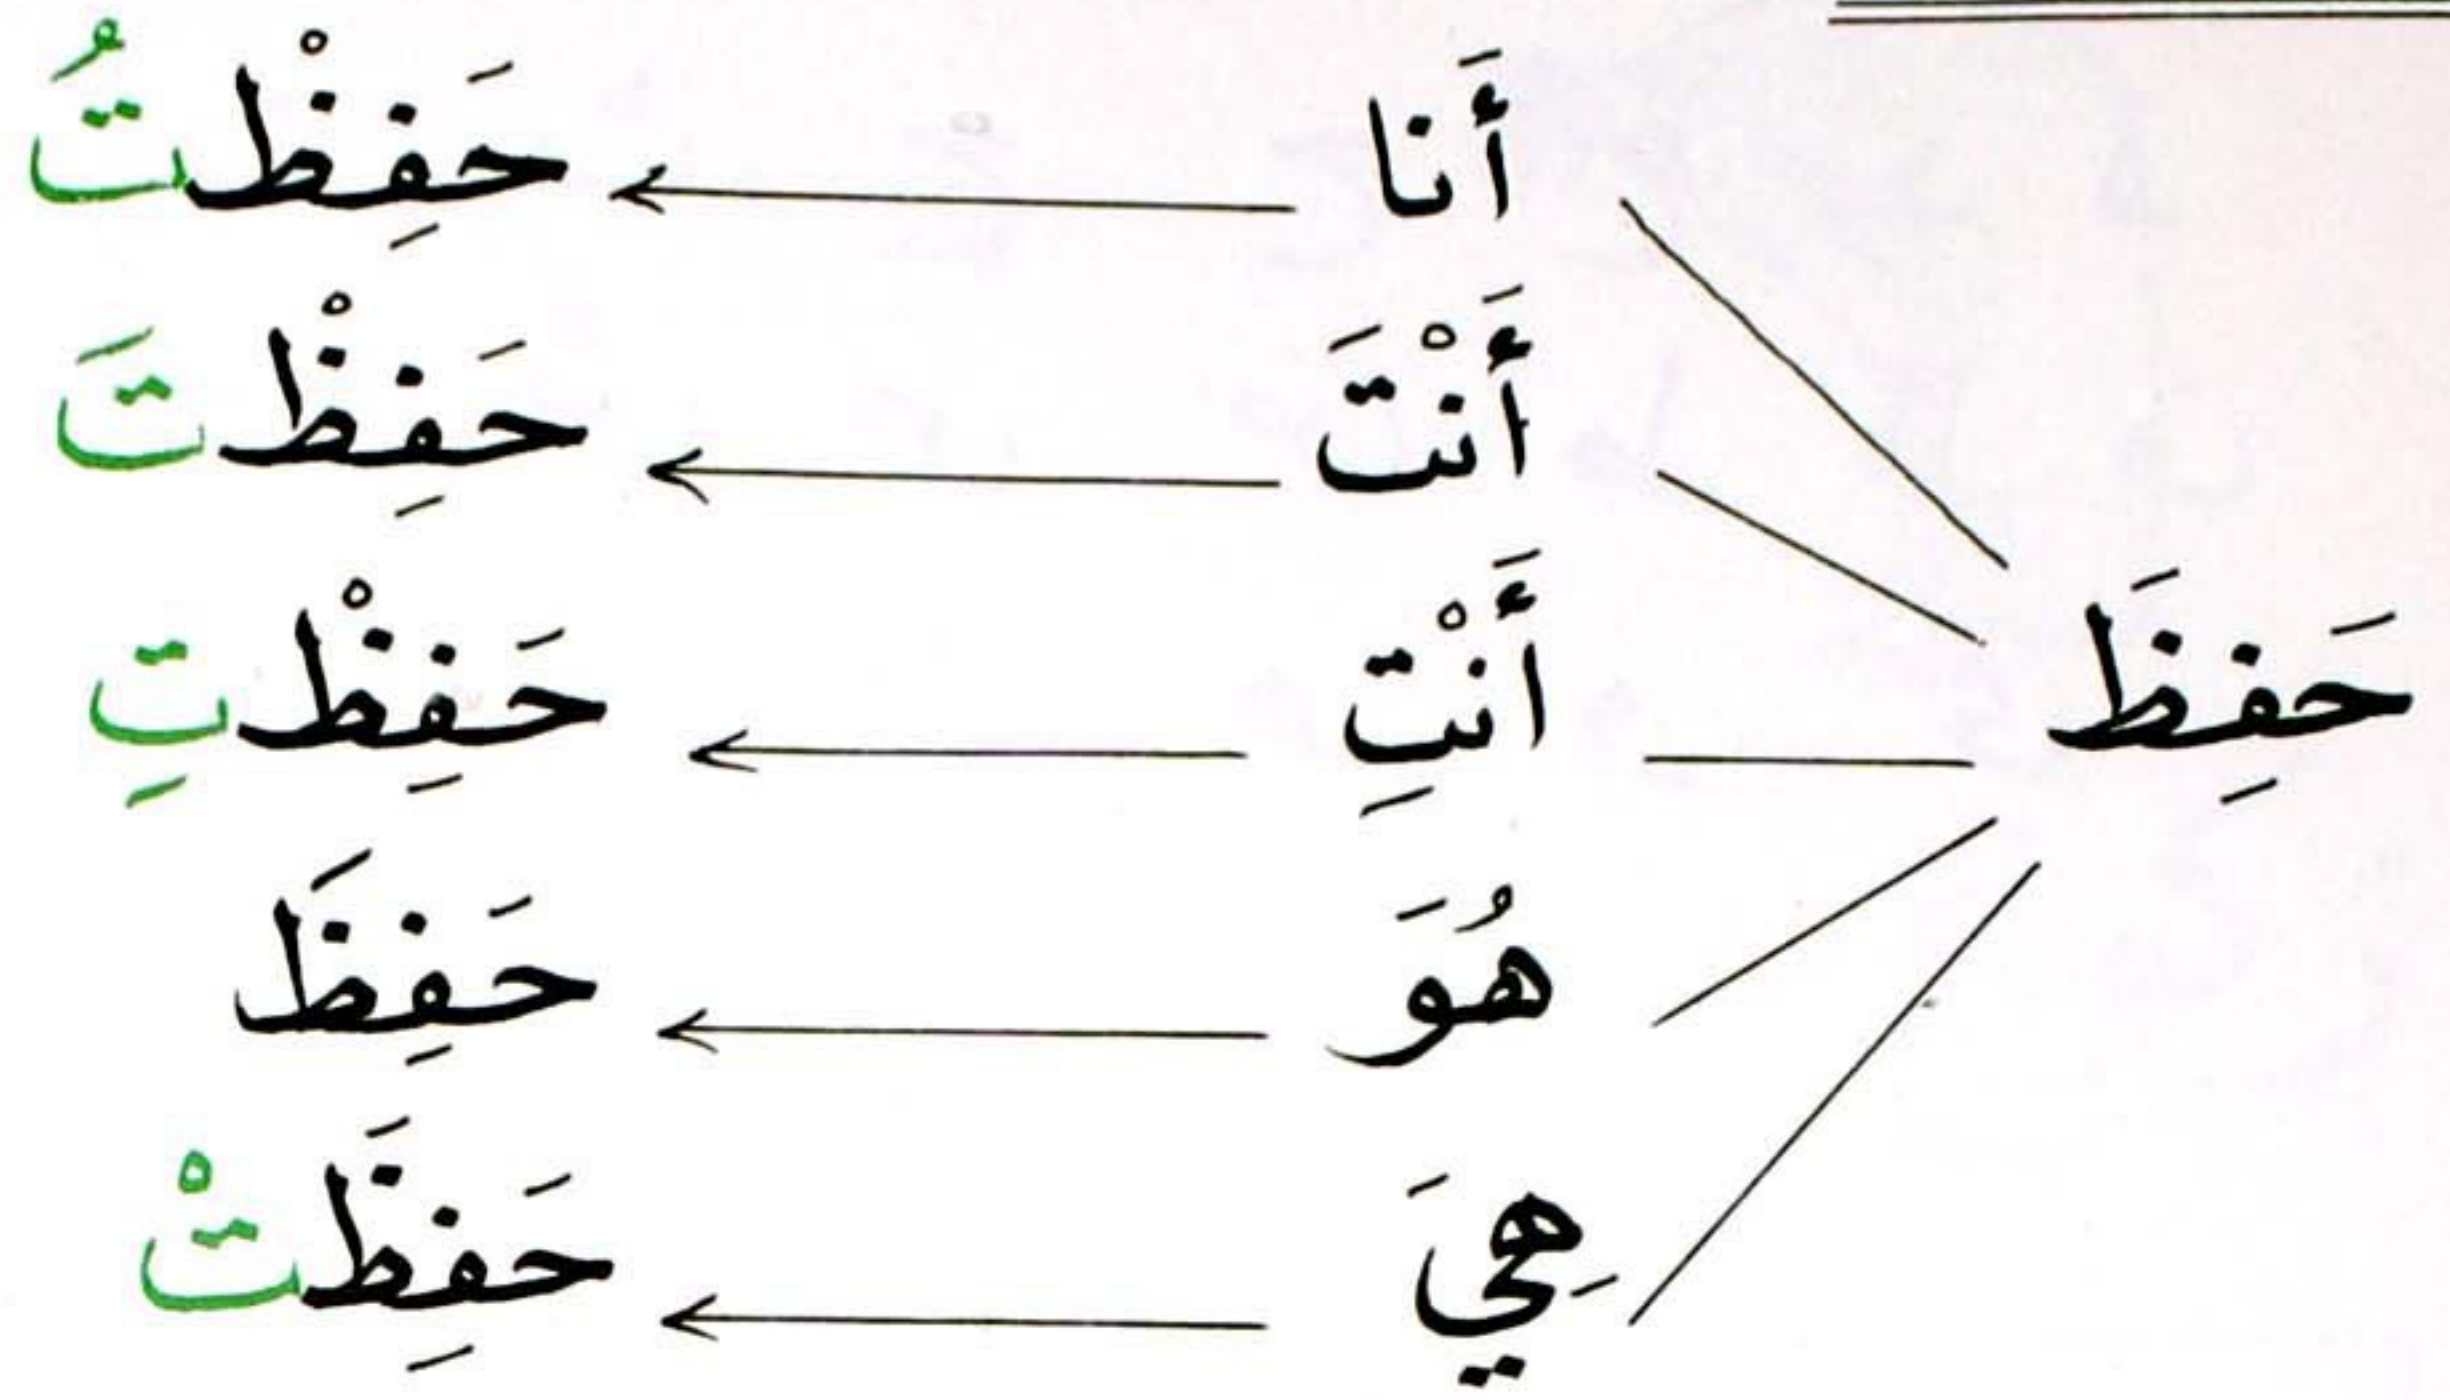 أَنا حَفِظْتُ
أَنْتَ حَفِظْتَ
حَفِظَ أَنْتِ حَفِظْتِ
هُوَ حَفِظَ
هِيَ حَفِظَتْ